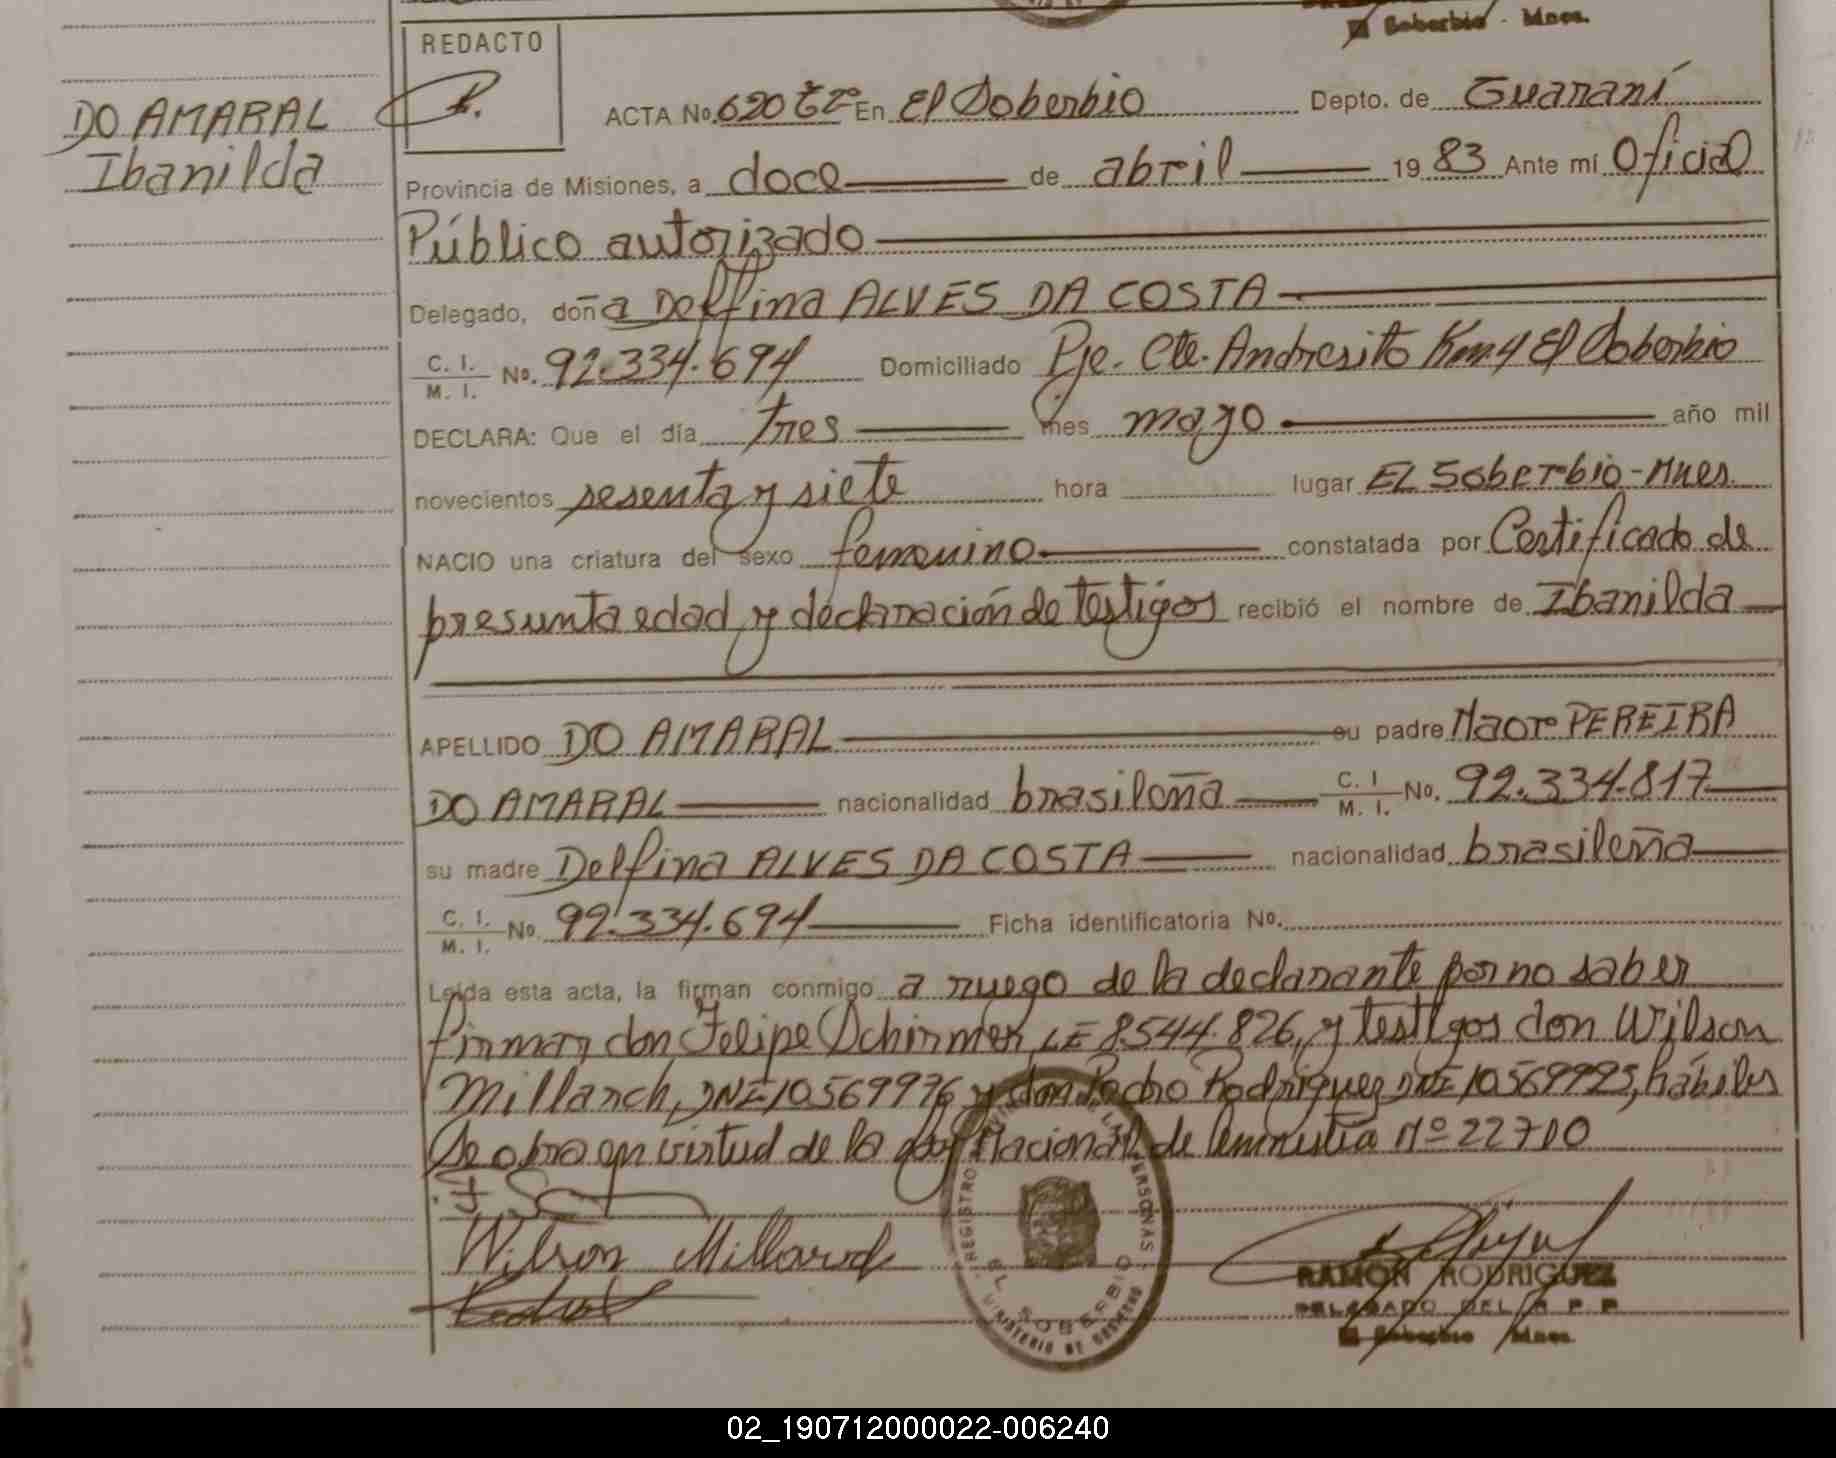 El Soberbio - Mnes.
REDACTO
DO AMARAL
Ibanilda
ACTA No. 620 Tº 2º En El Soberbio Depto. de Guaraní
Provincia de Misiones, a doce de abril 19 83 Ante mí Oficial
Público autorizado
Delegado, doña Delfina ALVES DA COSTA
C. I. M. I. No. 92.334.694 Domiciliado Pje. Cte. Andresito Km.4 El Soberbio
DECLARA: Que el día tres mes mayo año mil
novecientos sesenta y siete hora lugar EL Soberbio - Mnes.
NACIO una criatura del sexo femenino constatada por Certificado de
presunta edad y declaración de testigos recibió el nombre de Ibanilda
APELLIDO DO AMARAL su padre Naor PEREIRA
DO AMARAL nacionalidad brasileña C. I. M. I. No. 92.334.817
su madre Delfina ALVES DA COSTA nacionalidad brasileña
C. I. M. I. No. 92.334.694 Ficha identificatoria No.
Leída esta acta, la firman conmigo a ruego de la declarante por no saber
firmar don Felipe Schirmer LE 8.544.826, y testigos don Wilson
Millarch, DNI 10569976 y don Pedro Rodriguez DNI 10569995, hábiles
Se obra en virtud de la Ley Nacional de Amnistia Nº 22710
Wilson Millarch
REGISTRO PERSONAS
EL SOBERBIO
MINISTERIO DE GOBIERNO
RAMON RODRIGUEZ
DELEGADO DEL R P P
El Soberbio Mnes.
02_190712000022-006240